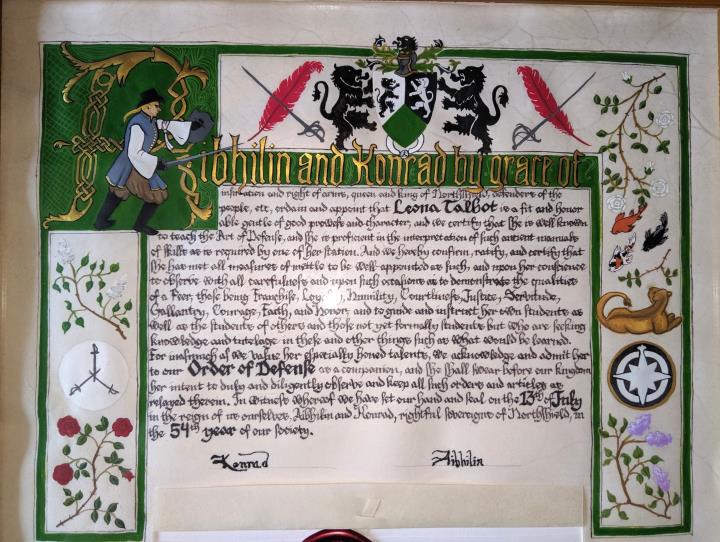 Aibhilin and Konrad by grace of
infiltration and right of arms, queen and king of Northshield, defenders of the
people, etc, ordain and appoint that Leona Talbot is a fit and honor
able gentle of good prowess and character, and we certify that she is well known
to teach the Art of Defense, and she is proficient in the interpretation of such ancient manuals
of skills as is required by one of her station. And we hereby confirm, ratify, and certify that
she has met all measures of mettle to be well appointed as such, and upon her conscience
to observe with all carefulness and upon such occasions as to demonstrate the qualities
of a Peer, those being Franchise, Loyalty, Humility, Courtliness, Justice, Servitude,
Gallantry, Courage, Faith, and Honor; and to guide and instruct her own students as
well as the students of others and those not yet formally students but who are seeking
knowledge and tutelage in these and other things such as what would be learned.
For inasmuch as we value her especially honed talents, we acknowledge and admit her
to our Order of Defense as a companion, and she shall swear before our kingdom
her intent to duly and diligently observe and keep all such orders and articles as
relayed therein. In witness whereof we have set our hand and seal on the 13th of July
in the reign of us ourselves, Aibhilin and Konrad, rightful sovereigns of Northshield, in
the 54th year of our society.
Konrad Aibhilin